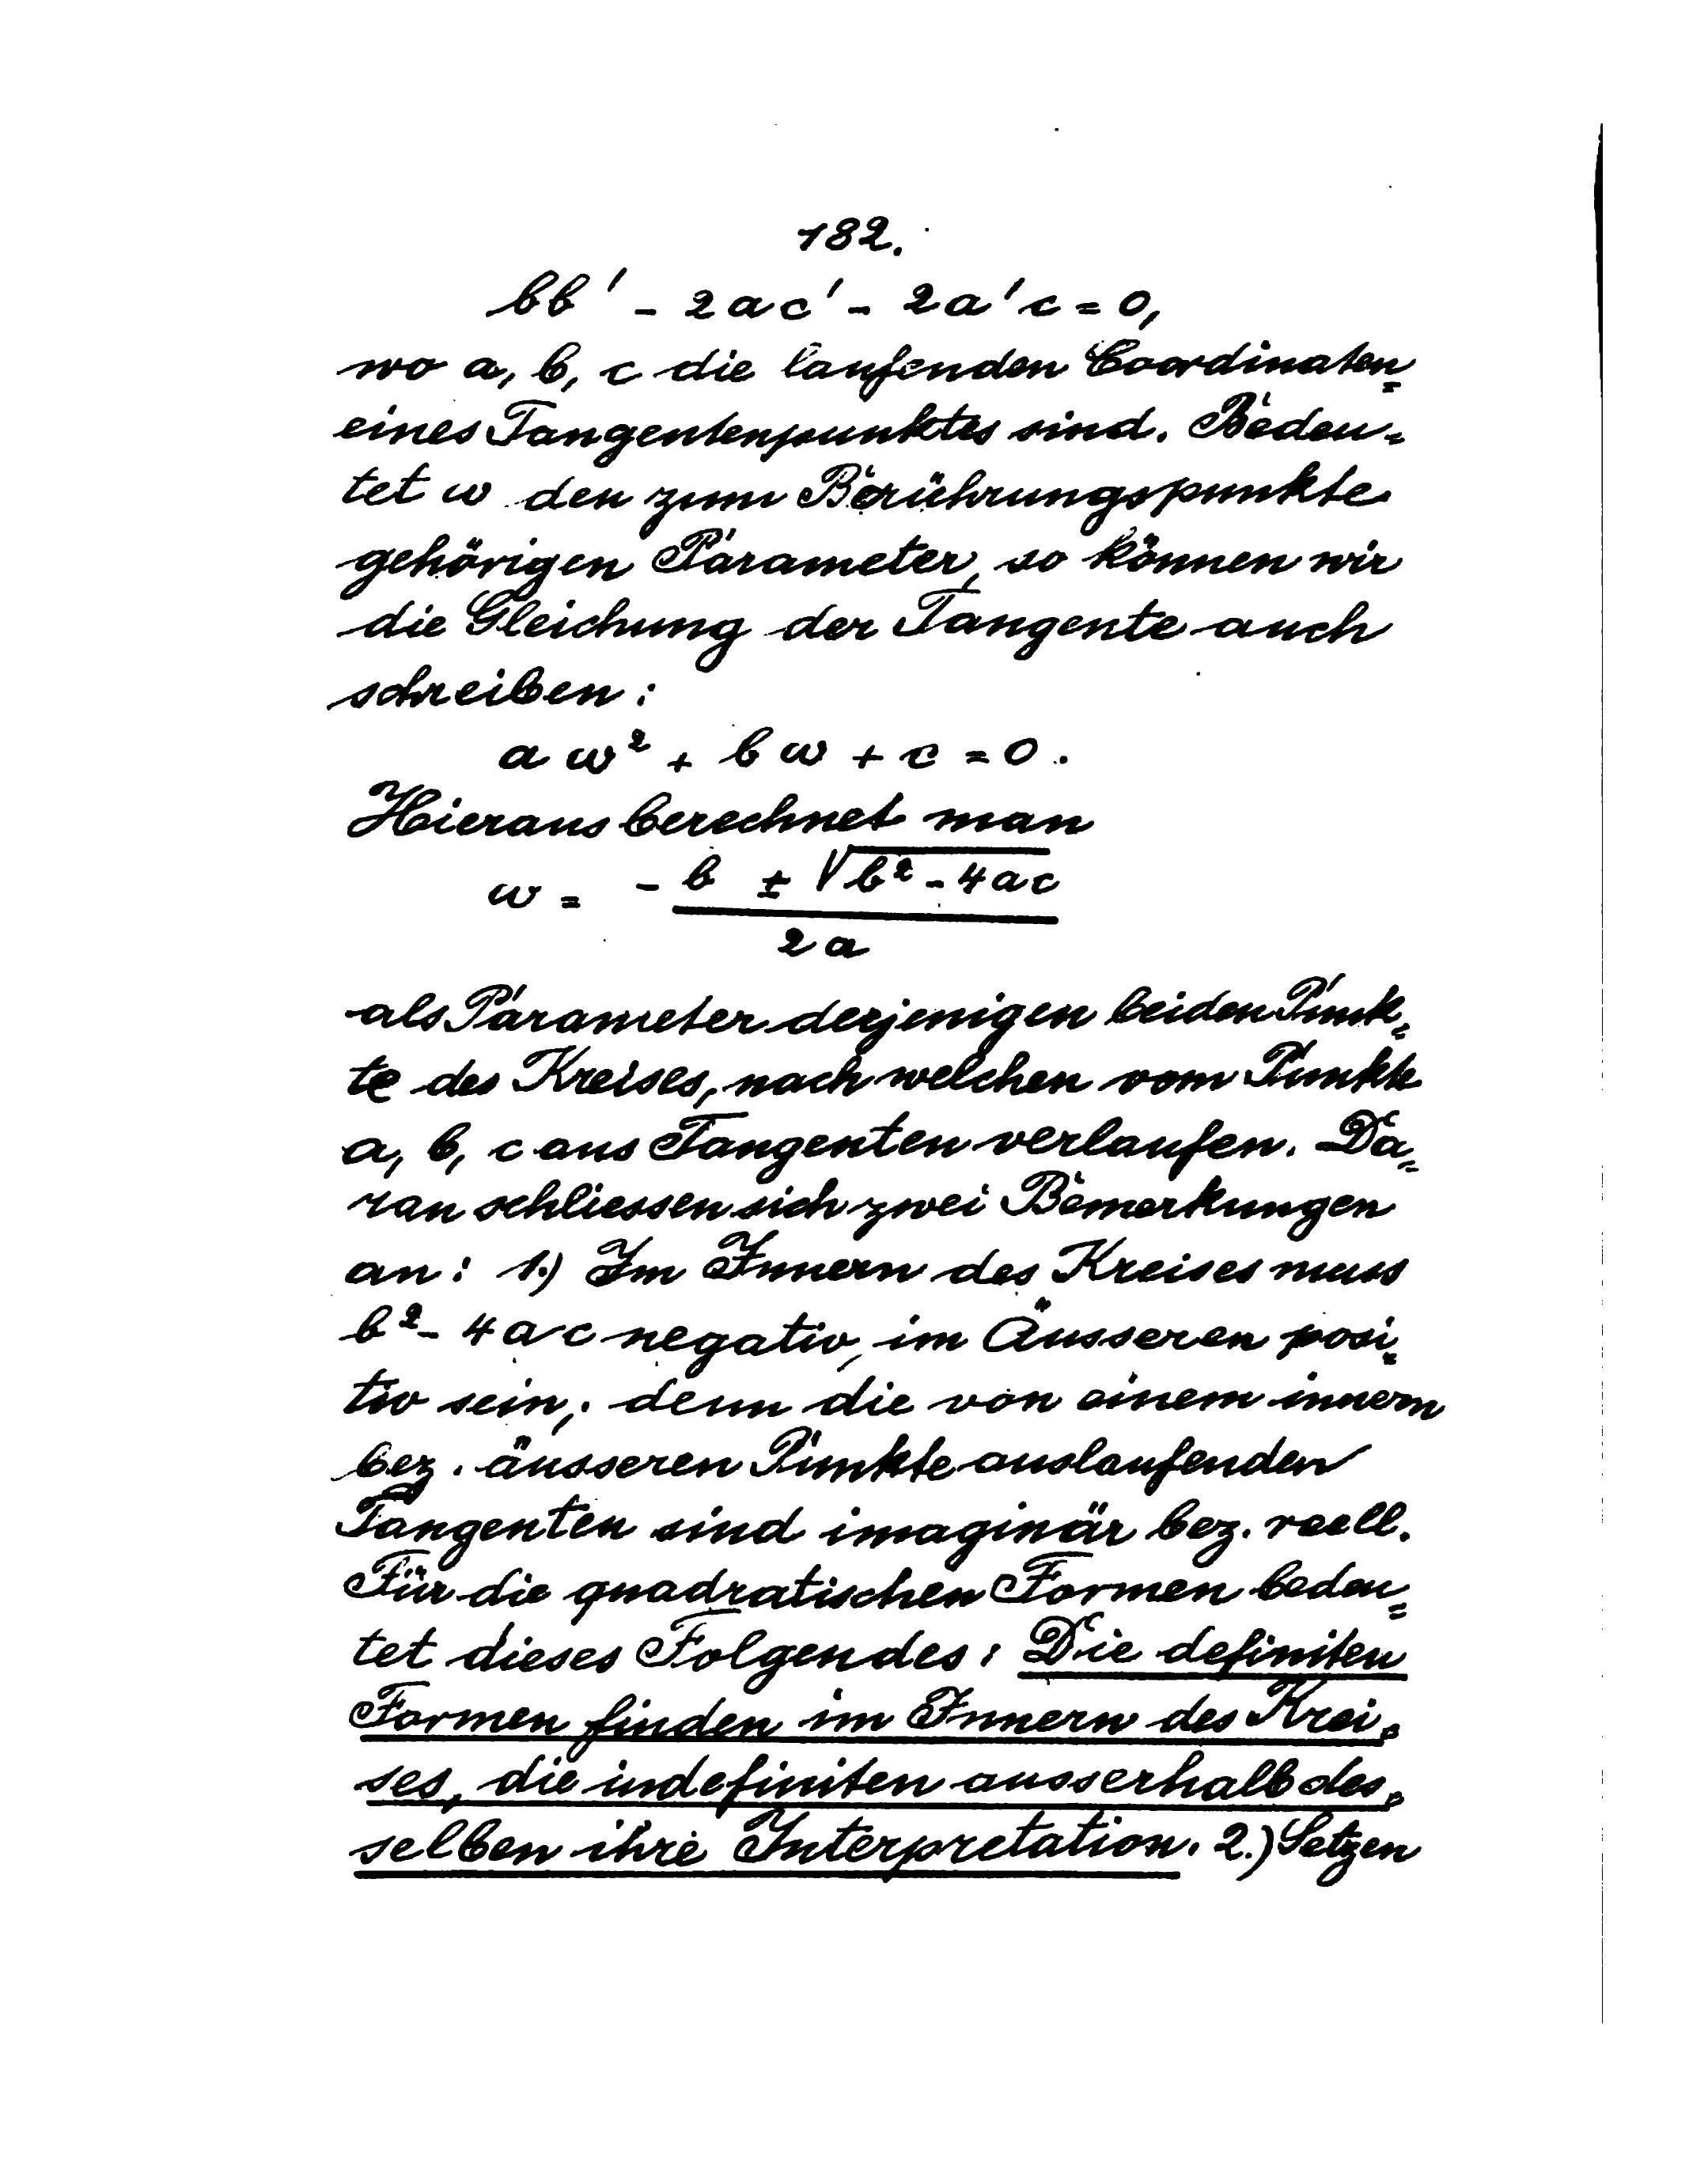 182.
bb' - 2ac' - 2a'c = 0,
wo a, b, c die laufenden Coordinaten
eines Tangentenpunktes sind. Bedeu-
tet ω den zum Berührungspunkte
gehörigen Parameter, so können wir
die Gleichung der Tangente auch
schreiben:
a ω² + b ω + c = 0.
Hieraus berechnet man
ω = (-b ± √(b² - 4ac)) / 2a
als Parameter derjenigen beiden Punk-
te des Kreises, nach welchen vom Punkte
a, b, c aus Tangenten verlaufen. Da-
ran schliessen sich zwei Bemerkungen
an: 1.) Im Innern des Kreises muss
b² - 4ac negativ, im Äusseren posi-
tiv sein; denn die von einem innern
bez. äusseren Punkte auslaufenden
Tangenten sind imaginär bez. reell.
Für die quadratischen Formen bedeu-
tet dieses Folgendes: Die definiten
Formen finden im Innern des Krei-
ses, die indefiniten ausserhalb des-
selben ihre Interpretation. 2.) Setzen